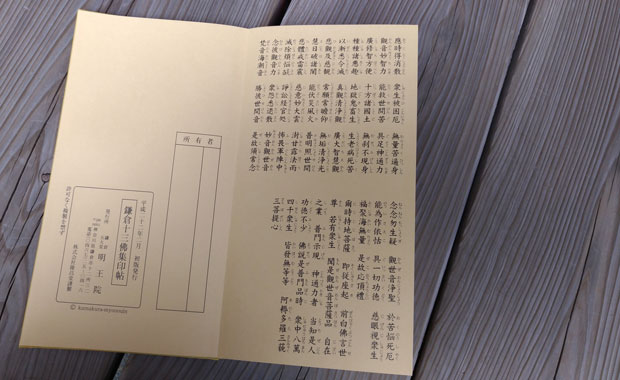 應時得消散 衆生被困厄 無量苦逼身
觀音妙智力 能救世間苦 具足神通力
廣修智方便 十方諸國土 無刹不現身
種種諸惡趣 地獄鬼畜生 生老病死苦
以漸悉令滅 真觀清淨觀 廣大智慧觀
悲觀及慈觀 常願常瞻仰 無垢清淨光
慧日破諸闇 能伏災風火 普明照世間
悲體戒雷震 慈意妙大雲 澍甘露法雨
滅除煩惱焔 諍訟經官処 怖畏軍陣中
念彼觀音力 衆怨悉退散 妙音觀世音
梵音海潮音 勝彼世間音 是故須常念
念念勿生疑 觀世音淨聖 於苦惱死厄
能為作依怙 具一切功德 慈眼視衆生
福聚海無量 是故應頂禮
爾時持地菩薩 即從座起 前白佛言世
尊 若有衆生 聞是觀世音菩薩品 自在
之業 普門示現 神通力者 當知是人
功德不少 佛說是普門品時 衆中八萬
四千衆生 皆發無等等 阿耨多羅三藐
三菩提心
所有者
平成二十二年 月 初版発行
鎌倉十三佛集印帖
明王院
許可なく複製を禁ず
© kamakura-myououin